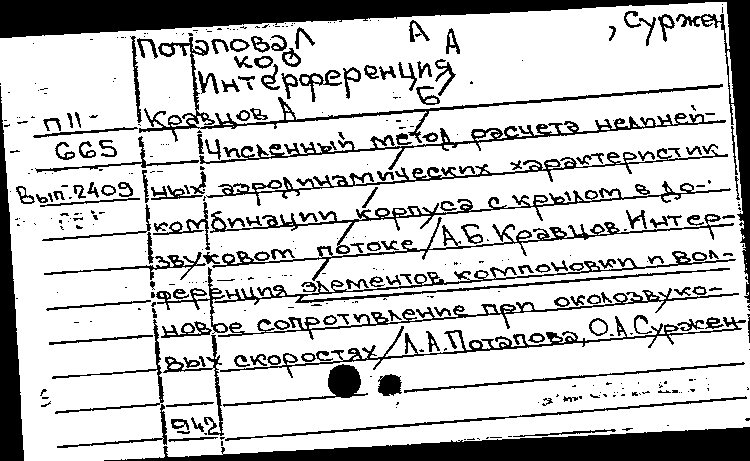 Потапова, Л А , Суржен
ко, О А
Интерференция
П11 Кравцов, А Б
665 Численный метод расчета нелиней-
Вып.2409 ных аэродинамических характеристик
комбинации корпуса с крылом в до-
звуковом потоке / А.Б. Кравцов. Интер-
ференция элементов компоновки и вол-
новое сопротивление при околозвуко-
вых скоростях / Л.А. Потапова, О.А. Суржен-
942